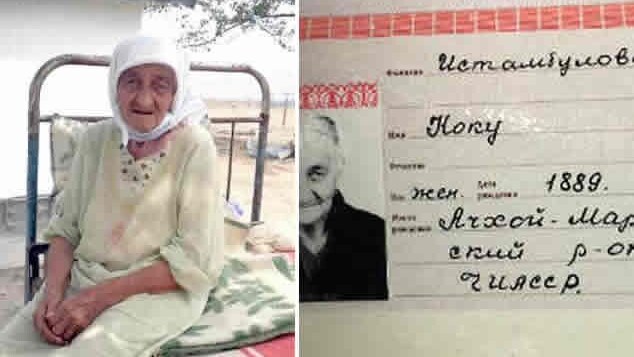 Фамилия Истамбулов
Имя Коку
Отчество
Пол жен. Дата рождения 1889.
Место рождения Ачхой-Мар
ский р-он
ЧИАССР.